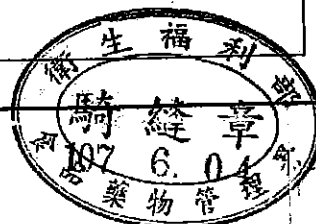 衛生福利部
騎縫章
107 6. 04
食品藥物管理署